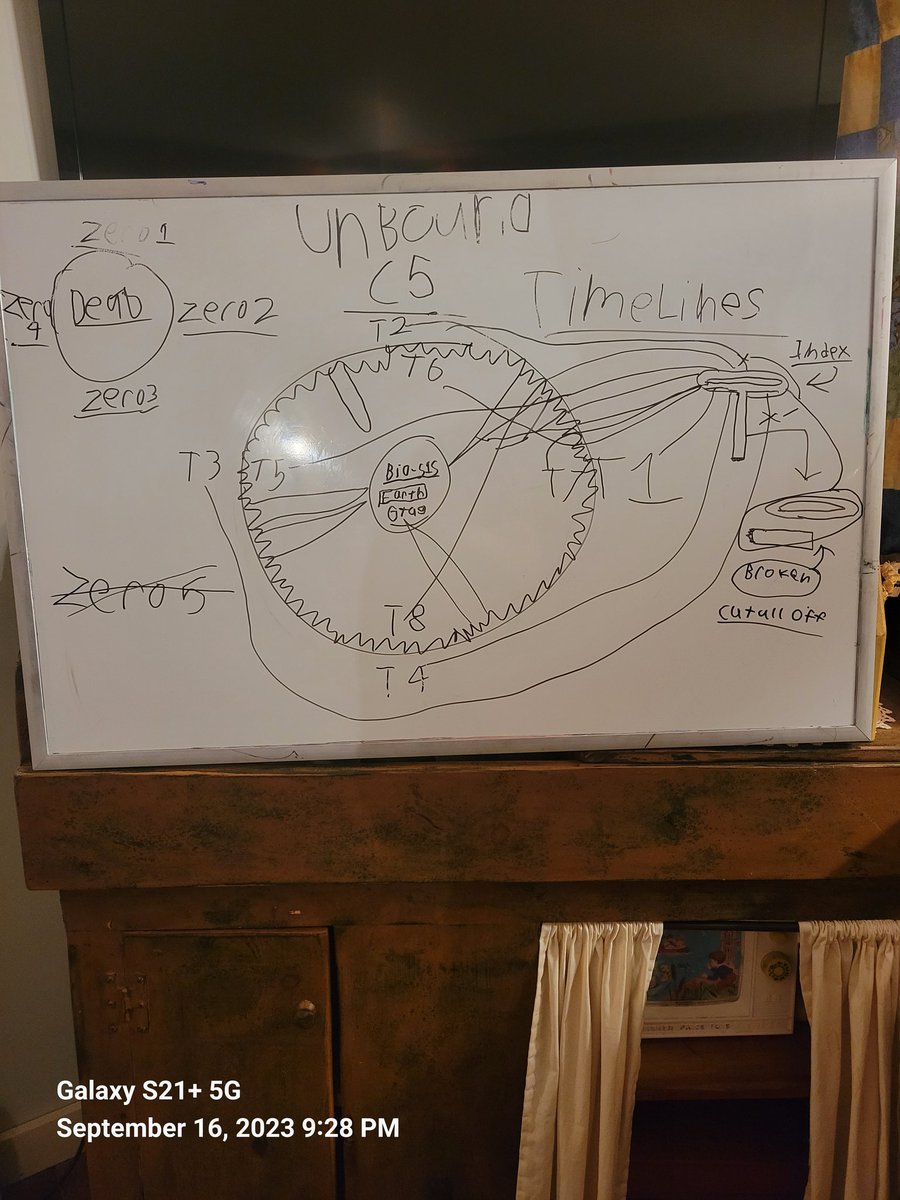 UnBound
Zero1
Zero 4
Dead
zero2
zero3
C5
TimeLines
T2
T6
Index
T3
T5
Bio-515
Earth
T7
T1
Zero5
Broken
Cut all off
T8
T4
Galaxy S21+ 5G
September 16, 2023 9:28 PM